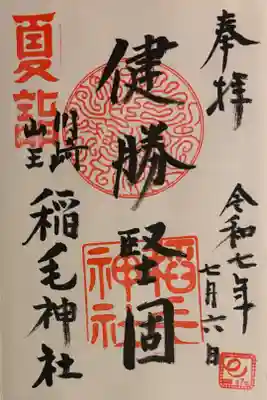 奉拝
令和七年
七月六日
健勝堅固
稲毛
神社
夏詣
山王
稲毛神社